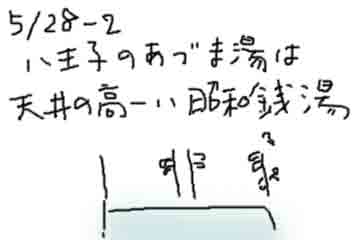 5/28-2
八王子のあづま湯は
天井の高一い昭和銭湯